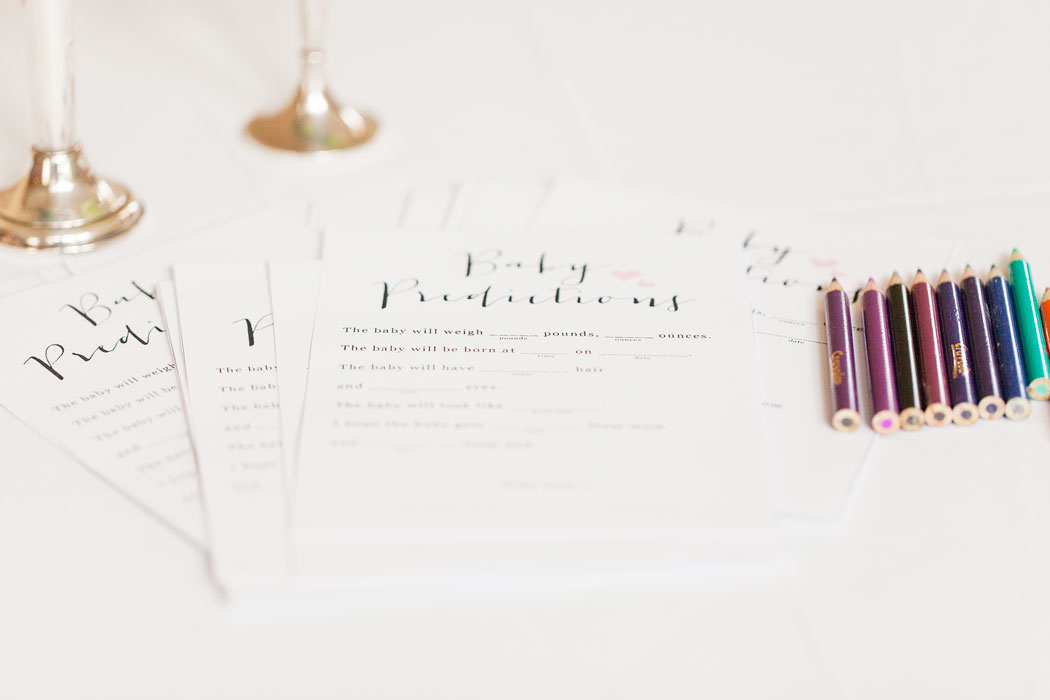 Baby
Predictions
The baby will weigh ____ pounds, ____ ounces.
pounds ounces
The baby will be born at ____ on ____.
time date
The baby will have ____ hair
color
and ____ eyes.
The baby will look like ____
I hope the baby gets ____ from mom
and ____ from dad
Bab
Predi
The baby will weigh
The baby will be
The baby will
and
P
The ba
The ba
The bal
and
I hope
by
ounces
date
om
Crayola